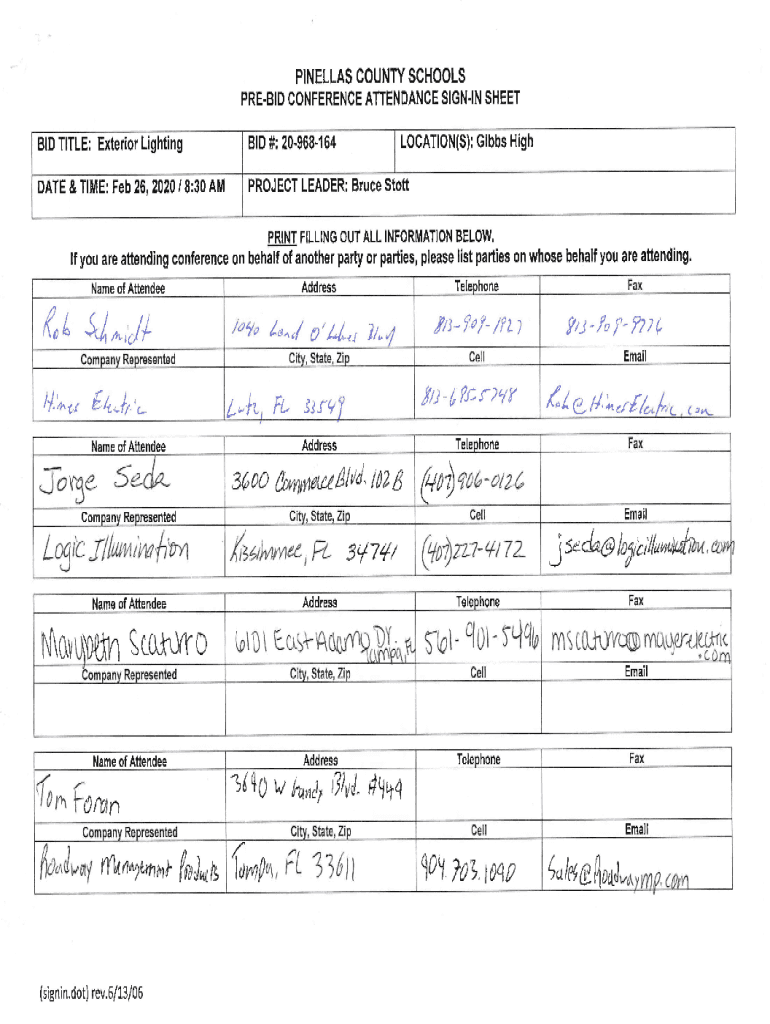 PINELLAS COUNTY SCHOOLS
PRE-BID CONFERENCE ATTENDANCE SIGN-IN SHEET
BID TITLE: Exterior Lighting BID #: 20-968-164 LOCATION(S): Gibbs High
DATE & TIME: Feb 26, 2020 / 8:30 AM PROJECT LEADER: Bruce Stott
PRINT FILLING OUT ALL INFORMATION BELOW.
If you are attending conference on behalf of another party or parties, please list parties on whose behalf you are attending.
Name of Attendee Address Telephone Fax
Rob Schmidt 1040 Land O'Lakes Blvd 813-909-1927 813-909-9776
Company Represented City, State, Zip Cell Email
Himes Electric Lutz, FL 33549 813-695-5748 Rob@HimesElectric.com
Name of Attendee Address Telephone Fax
Jorge Seda 3600 Commerce Blvd. 102B (407)906-0126
Company Represented City, State, Zip Cell Email
Logic Illumination Kissimmee, FL 34741 (407)227-4172 jseda@logicillumination.com
Name of Attendee Address Telephone Fax
Marybeth Scaturro 6101 East Adamo Dr. Tampa, FL 561-901-5496 mscaturro@mayerelectric.com
Company Represented City, State, Zip Cell Email
Name of Attendee Address Telephone Fax
Tom Foran 3690 W Gandy Blvd. #449
Company Represented City, State, Zip Cell Email
Roadway Management Products Tampa, FL 33611 904.703.1090 Sales@Roadwaymp.com
(signin.dot) rev.6/13/06